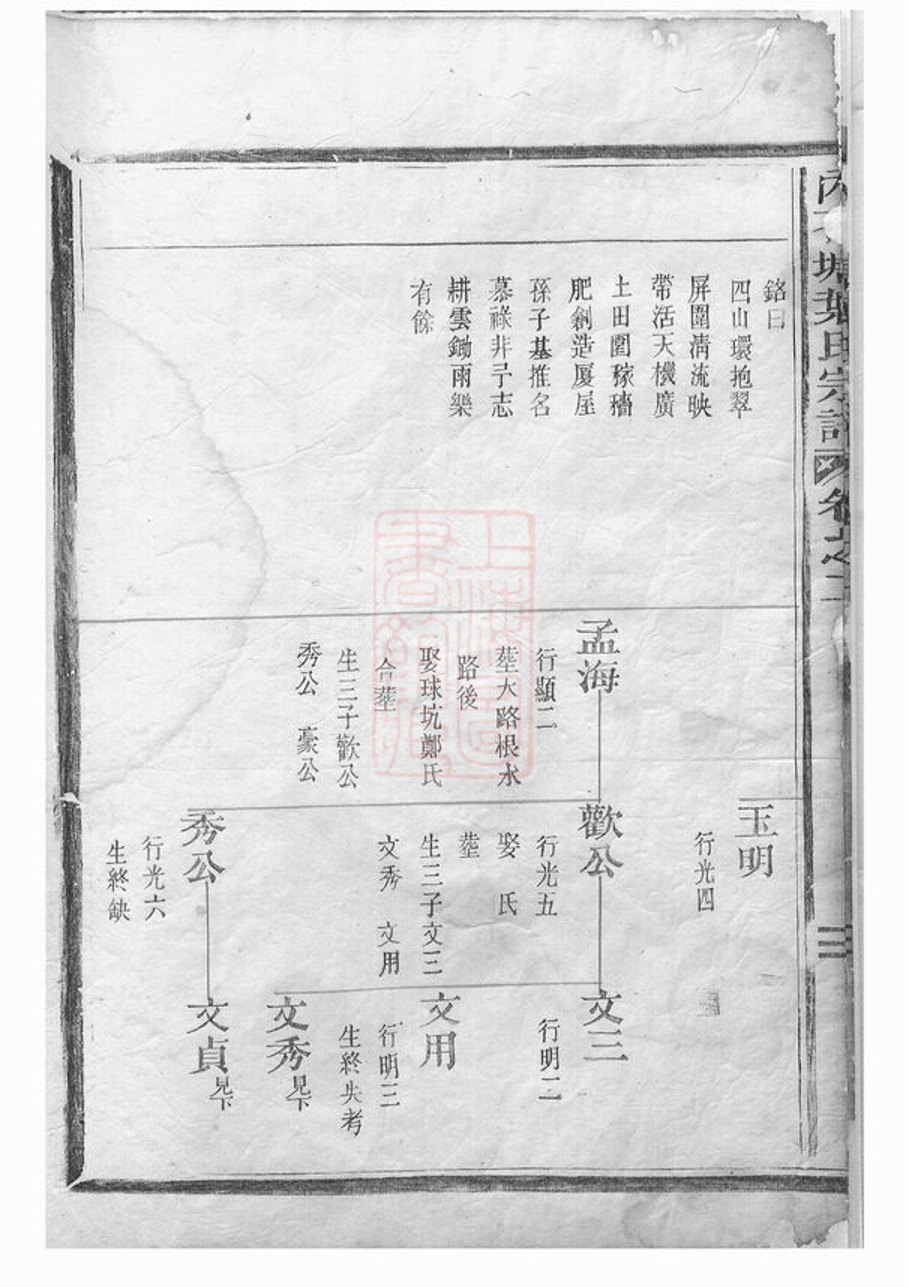 塘葉氏宗譜 卷之二
三
銘曰
四山環抱翠
屏圍清流映
帶活天機廣
土田圍稼穡
肥創造厦屋
孫子基推名
慕祿非予志
耕雲鋤雨樂
有餘
玉明
行光四
孟海
行顯二
塟大路根水
路後
娶球坑鄭氏
合塟
生三子歡公
秀公 豪公
歡公
行光五
娶 氏
塟
生三子文三
文秀 文用
秀公
行光六
生終缺
文三
行明二
文用
行明三
生終失考
文秀見下
文貞見下
上海圖書館藏